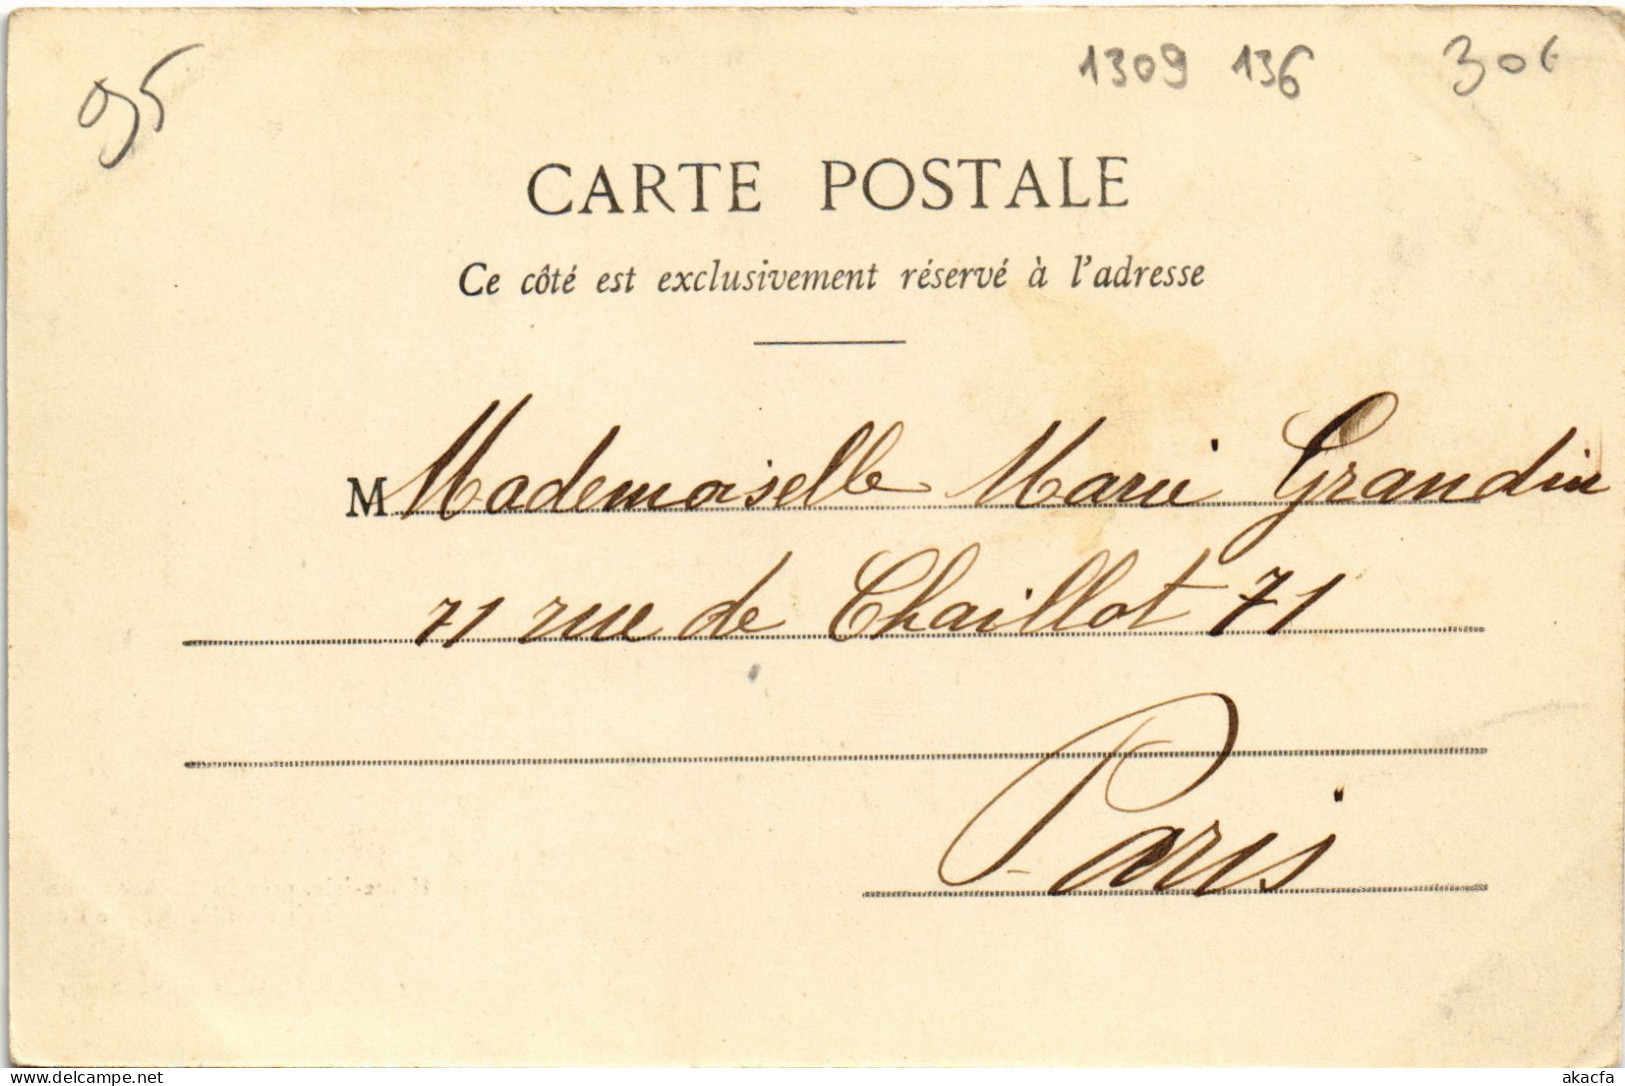 95
1309 136 30€
CARTE POSTALE
Ce côté est exclusivement réservé à l'adresse
M Mademoiselle Marie Grandin
71 rue de Chaillot 71
Paris
www.delcampe.net
akacfa